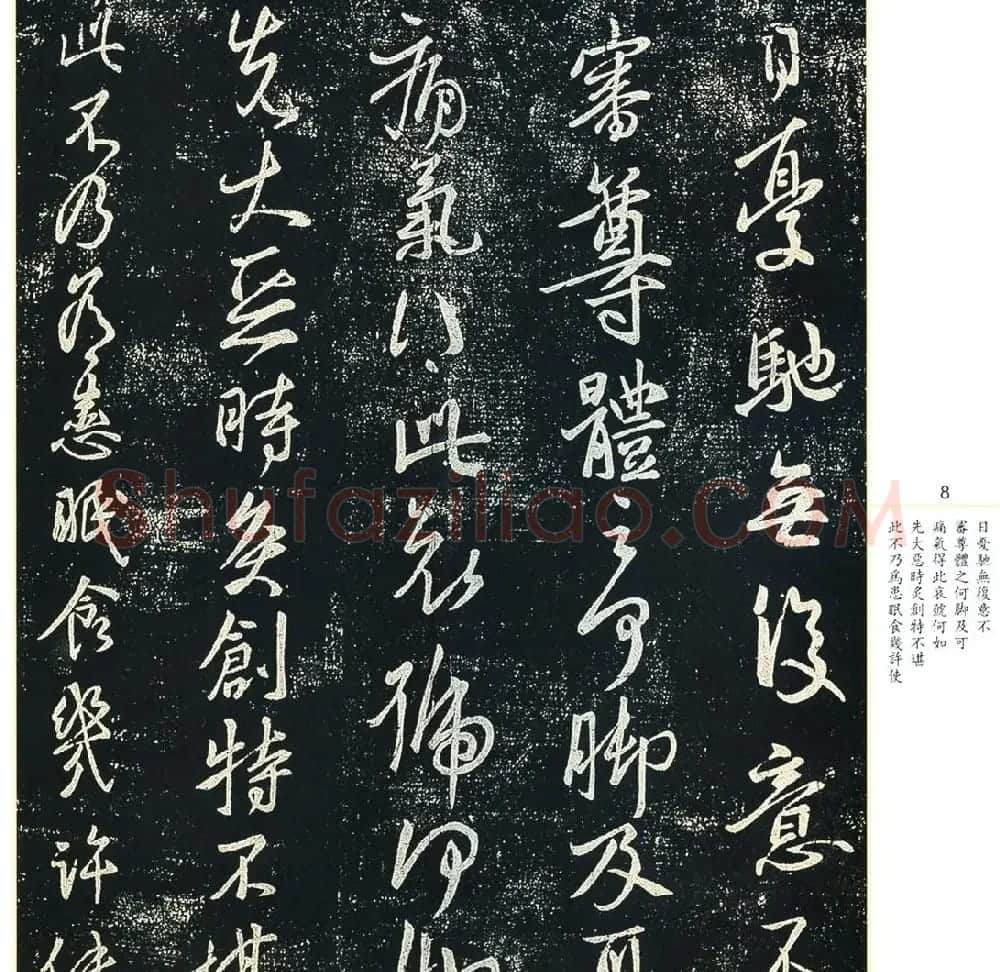 日憂馳無復意不
審尊體之何脚及可
痛氣得此哀號何如
先大惡時炙創特不堪
此不乃爲患眠食幾許使
8
日憂馳無復意不
審尊體之何脚及可
痛氣得此哀號何如
先大惡時炙創特不堪
此不乃爲患眠食幾許使
Shufaziliao.COM